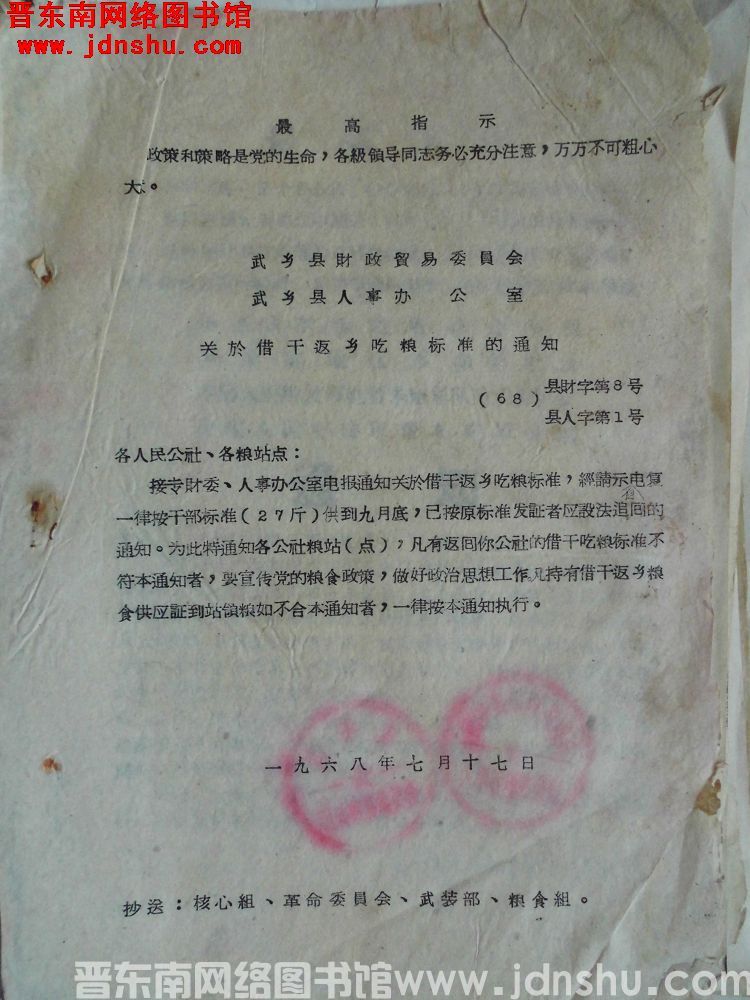 晋东南网络图书馆
www.jdnshu.com
最高指示
政策和策略是党的生命，各級領导同志务必充分注意，万万不可粗心
大意。
武乡县財政貿易委員会
武乡县人事办公室
关於借干返乡吃粮标准的通知
(68)县財字第8号
县人字第1号
各人民公社、各粮站点：
接专財委、人事办公室电报通知关於借干返乡吃粮标准，經請示电复
一律按干部标准(27斤)供到九月底，已按原标准发証者应設法追回的
通知。为此特通知各公社粮站(点)，凡有返回你公社的借干吃粮标准不
符本通知者，要宣传党的粮食政策，做好政治思想工作凡持有借干返乡粮
食供应証到站領粮如不合本通知者，一律按本通知执行。
一九六八年七月十七日
抄送：核心組、革命委員会、武装部、粮食組。
晋东南网络图书馆www.jdnshu.com